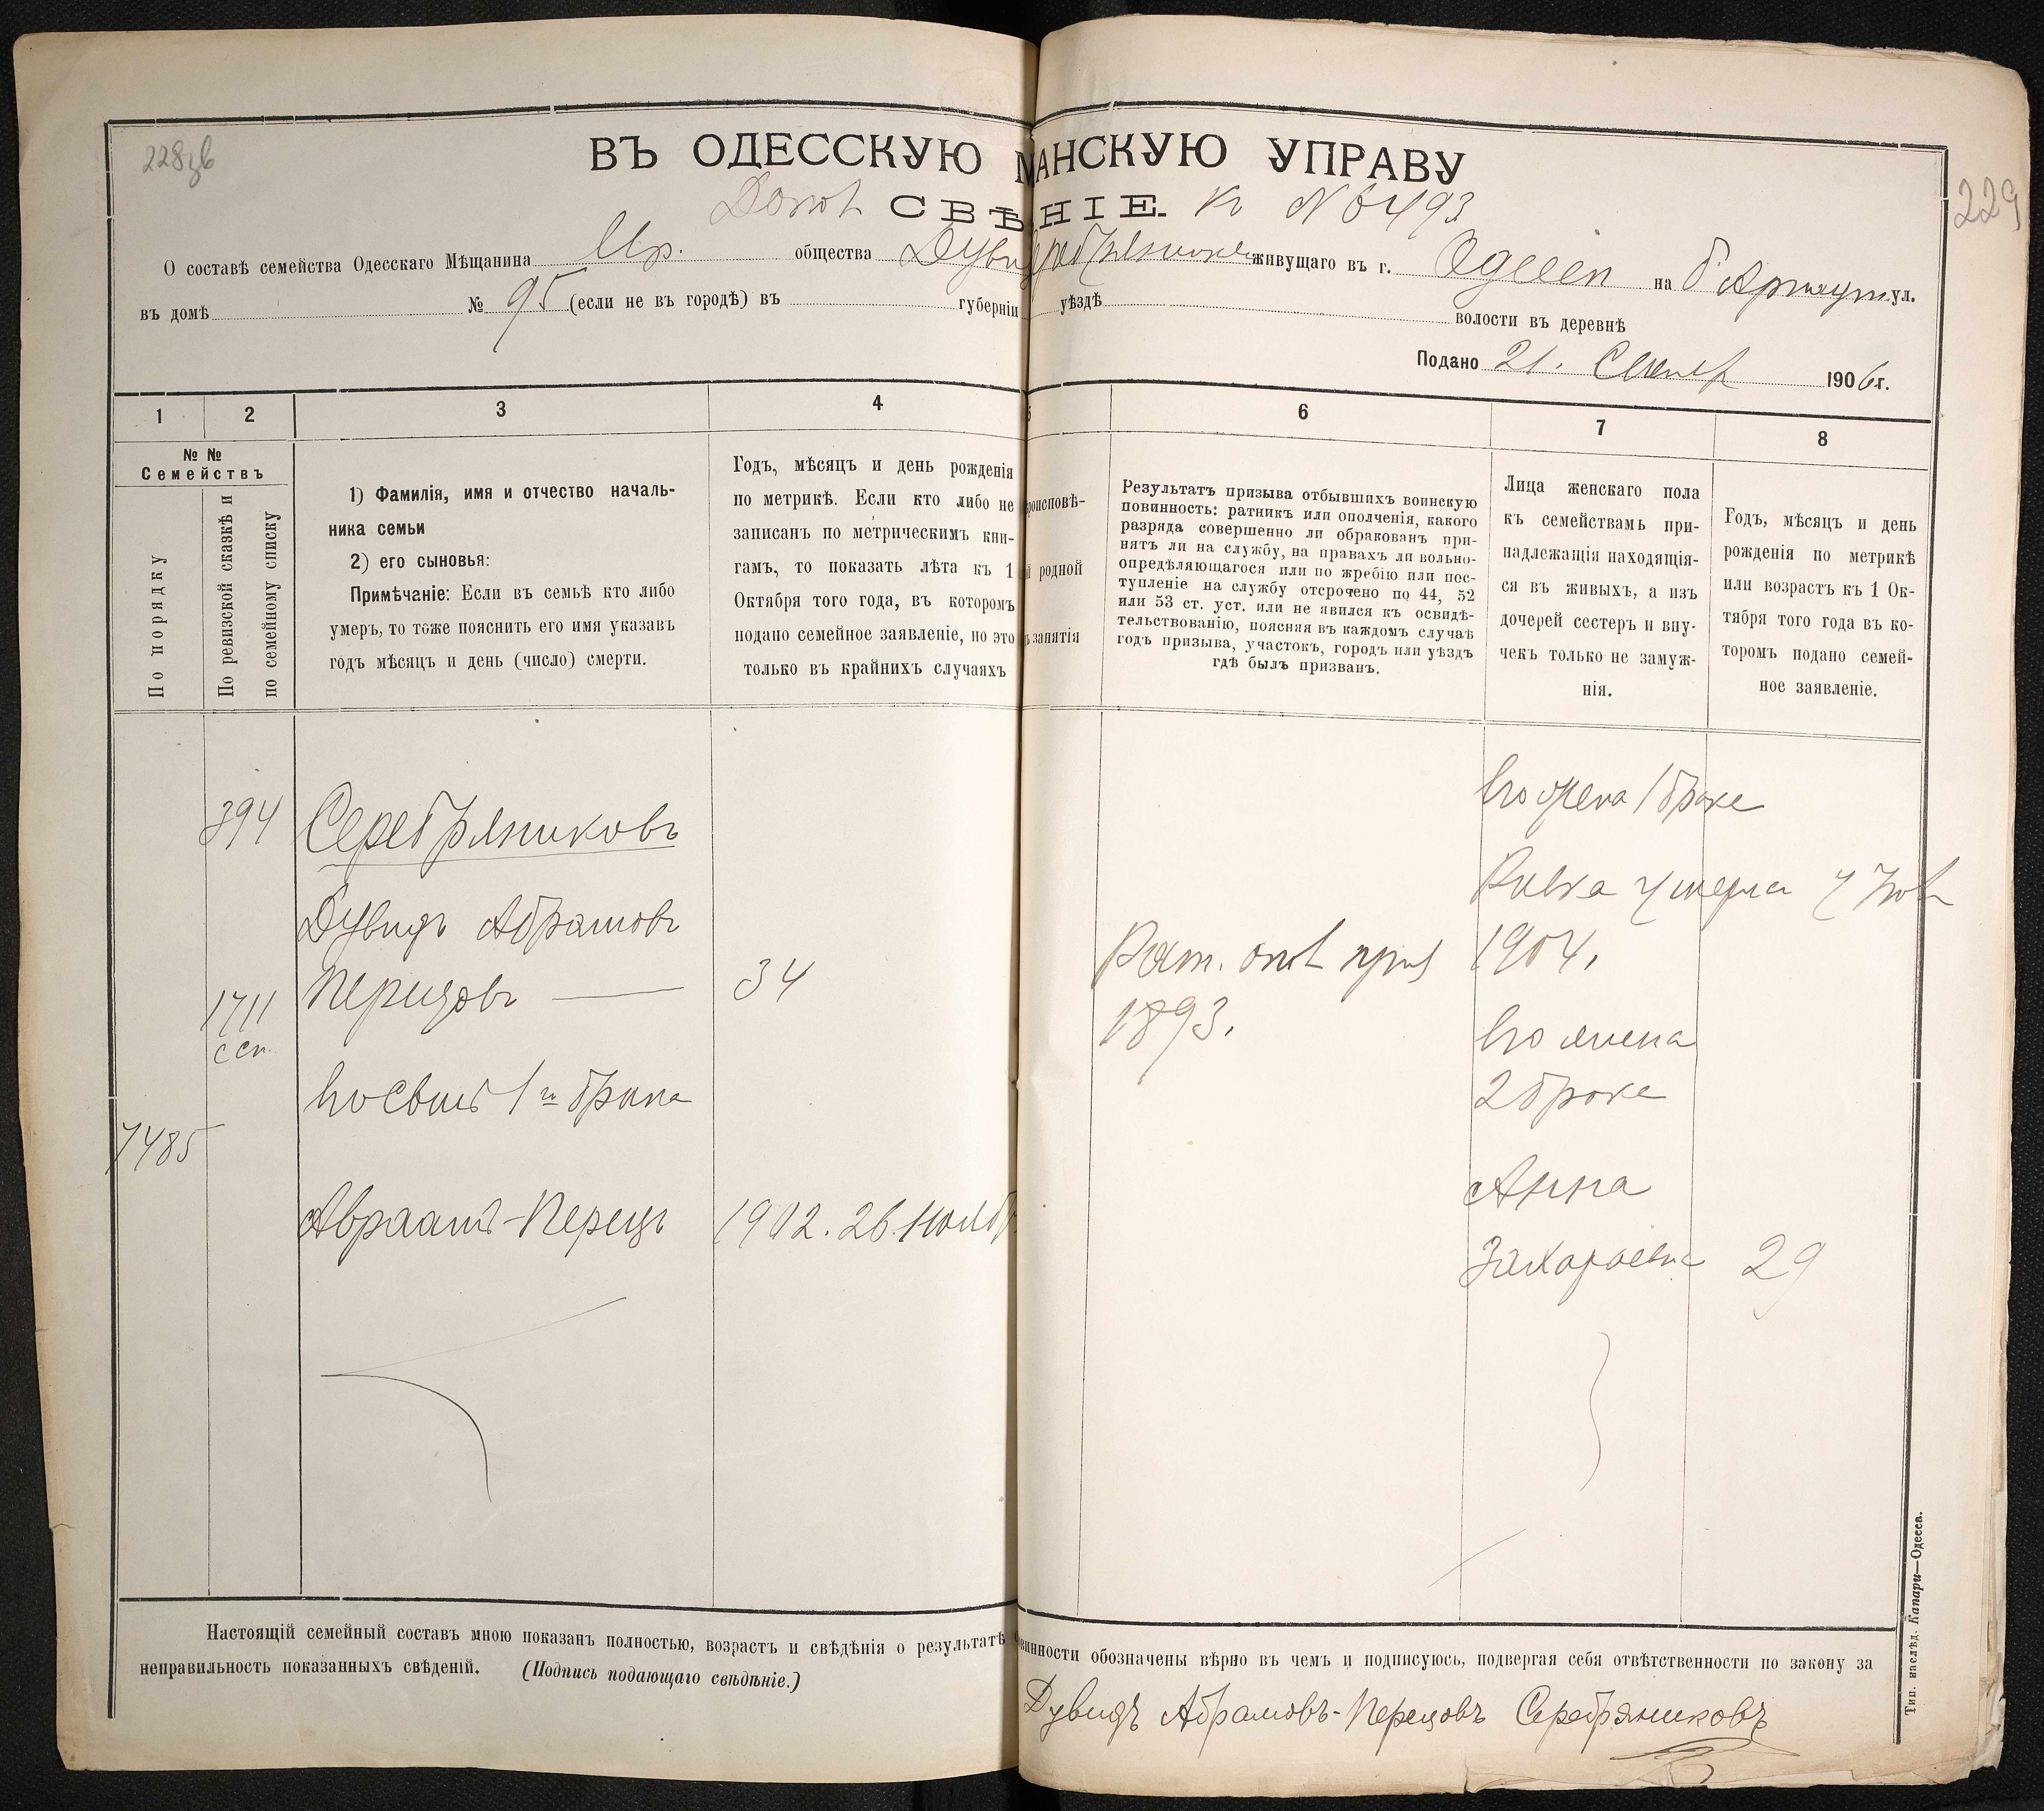 228зв
229
ВЪ ОДЕССКУЮ МАНСКУЮ УПРАВУ
СВѢНІЕ. к N 6493
О составѣ семейства Одесскаго Мѣщанина общества Дуви живущаго въ г. Одессѣ на Б Арнаут ул.
въ домѣ № 95 (если не въ городѣ) въ губерніи уѣздѣ волости въ деревнѣ
Подано 21. 1906 г.
1 2 3 4 5 6 7 8
№ №
Семействъ
По порядку
По ревизской сказкѣ и
по семейному списку
1) Фамилія, имя и отчество началь-
ника семьи
2) его сыновья:
Примѣчаніе: Если въ семьѣ кто либо
умеръ, то тоже пояснить его имя указавъ
годъ мѣсяцъ и день (число) смерти.
Годъ, мѣсяцъ и день рожденія
по метрикѣ. Если кто либо не
записанъ по метрическимъ кни-
гамъ, то показать лѣта къ 1
Октября того года, въ которомъ
подано семейное заявленіе, но это
только въ крайнихъ случаяхъ
роисповѣ-
й родной
занятія
Результатъ призыва отбывшихъ воинскую
повинность: ратникъ или ополченія, какого
разряда совершенно ли обракованъ при-
нятъ ли на службу, на правахъ ли вольно-
опредѣляющагося или по жребію или пос-
тупленіе на службу отсрочено по 44, 52
или 53 ст. уст. или не явился къ освидѣ-
тельствованію, поясняя въ каждомъ случаѣ
годъ призыва, участокъ, городъ или уѣздъ
гдѣ былъ призванъ.
Лица женскаго пола
къ семействамъ при-
надлежащія находящія-
ся въ живыхъ, а изъ
дочерей сестеръ и вну-
чекъ только не замуж-
нія.
Годъ, мѣсяцъ и день
рожденія по метрикѣ
или возрастъ къ 1 Ок-
тября того года въ ко-
торомъ подано семей-
ное заявленіе.
394 Серебряниковъ
Дувидъ Абрамовъ
Перецовъ — 34
1711
ссп.
Его сынъ 1го брака
7485
Авраамъ-Перецъ 1902. 26. Ноябр
Рат. опол приз
1893.
Его жена 1 брака
Ривка умерла 7 Ноя
1904.
Его жена
2 брака
Анна
Захарьевна 29
Настоящій семейный составъ мною показанъ полностью, возрастъ и свѣдѣнія о результатѣ винности обозначены вѣрно въ чемъ и подписуюсь, подвергая себя отвѣтственности по закону за
неправильность показанныхъ свѣденій. (Подпись подающаго свѣдѣніе.)
Дувидъ Абрамовъ-Перецовъ Серебряниковъ
Тип. наслѣд. Капари—Одесса.